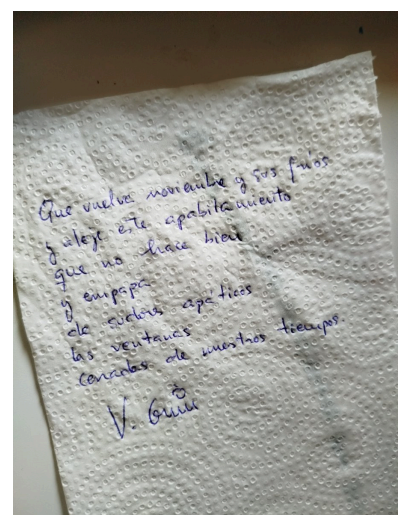 Que vuelva noviembre y sus fríos
y aleje este apabilamiento
que no hace bien
y empapa
de sudores apáticos
las ventanas
cerradas de nuestros tiempos.
V.